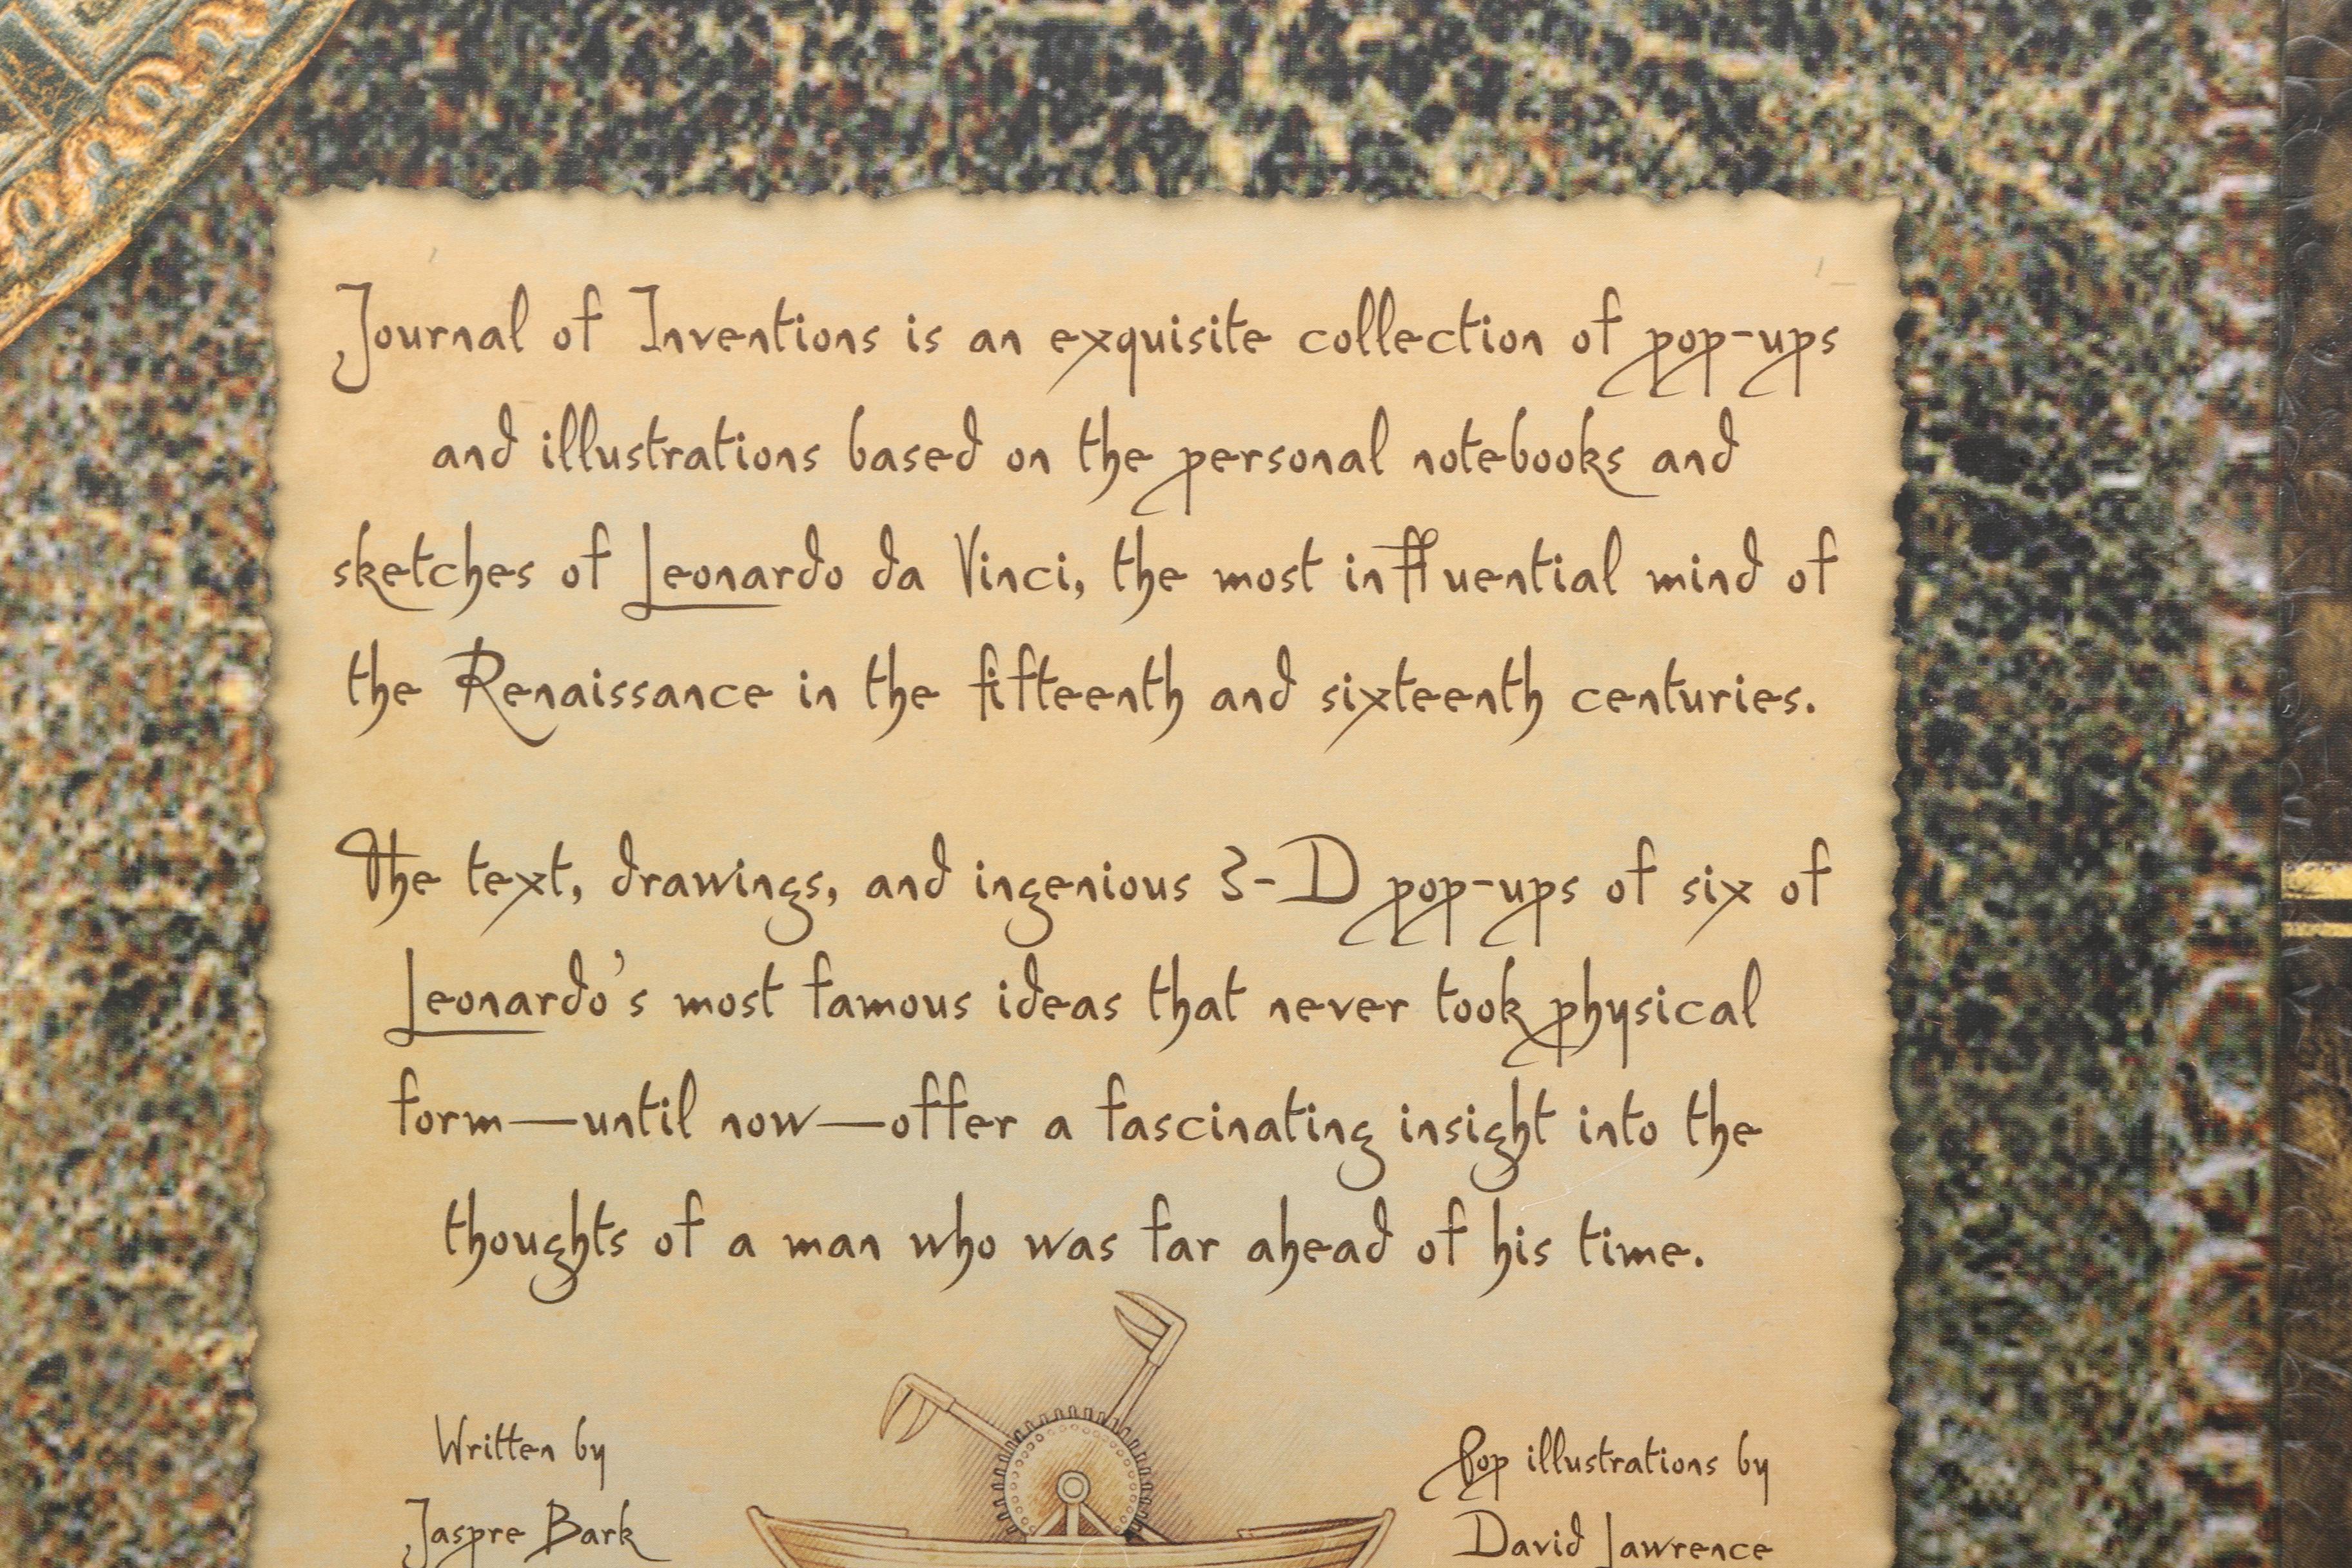 Journal of Inventions is an exquisite collection of pop-ups
and illustrations based on the personal notebooks and
sketches of Leonardo da Vinci, the most influential mind of
the Renaissance in the fifteenth and sixteenth centuries.
The text, drawings, and ingenious 3-D pop-ups of six of
Leonardo's most famous ideas that never took physical
form—until now—offer a fascinating insight into the
thoughts of a man who was far ahead of his time.
Written by
Jaspre Bark
Pop illustrations by
David Lawrence